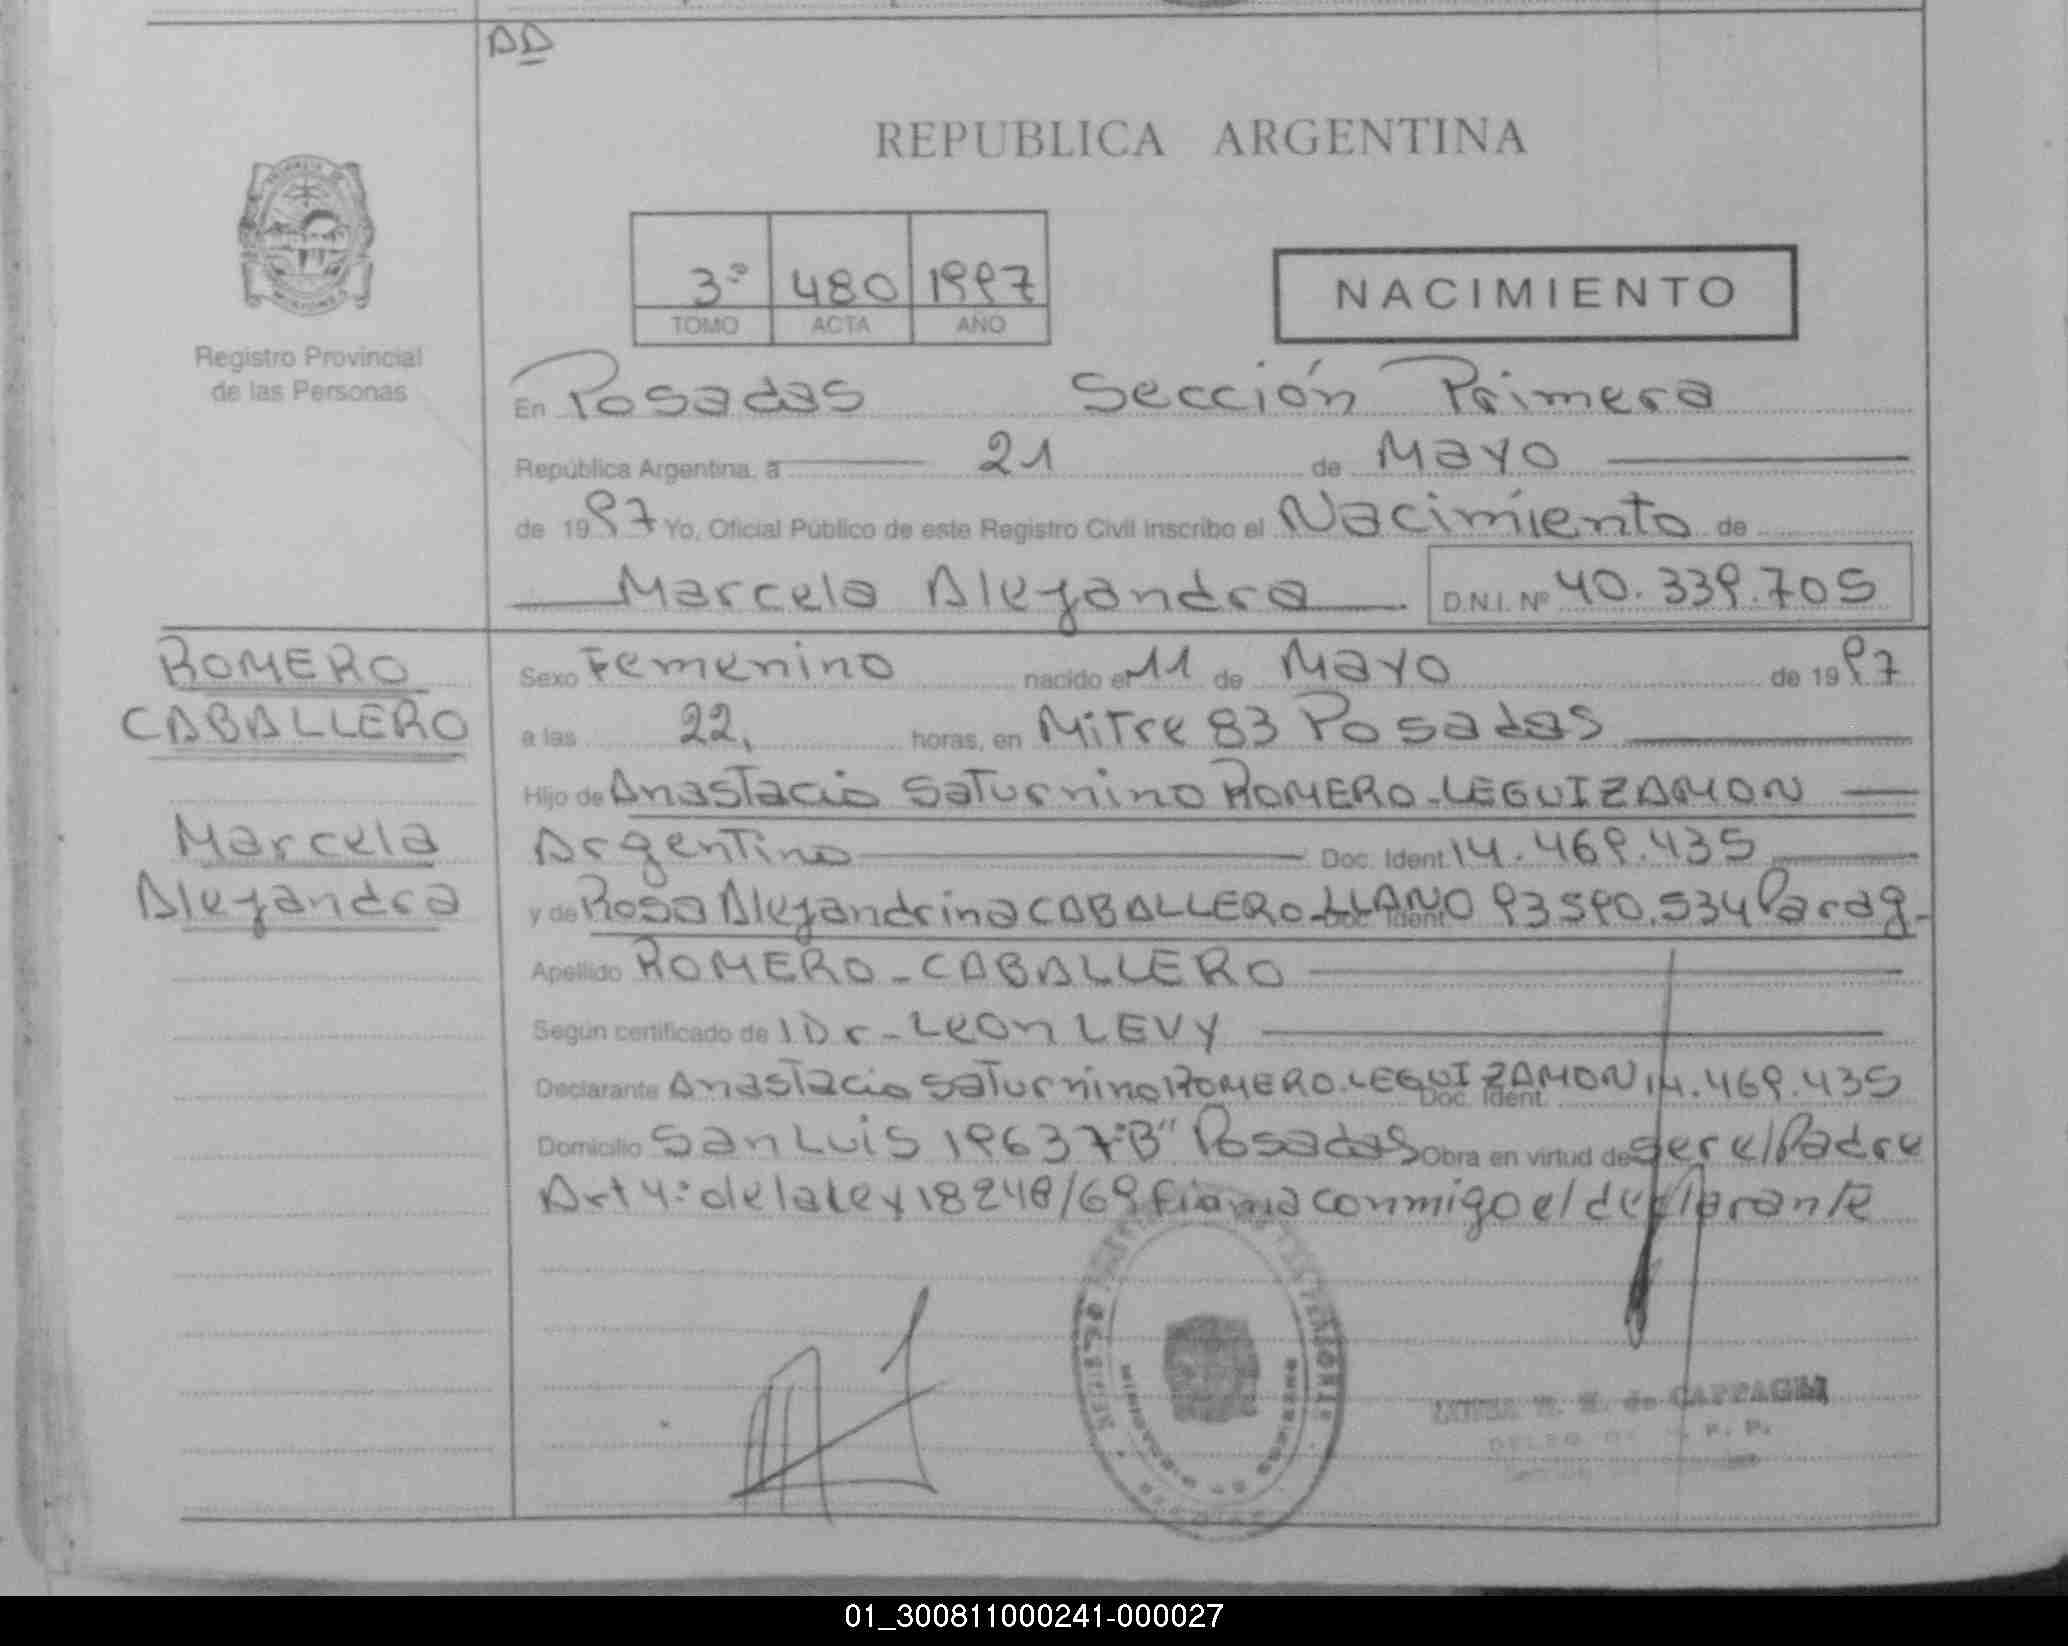 AA
REPUBLICA ARGENTINA
3º 480 1997
TOMO ACTA AÑO
NACIMIENTO
Registro Provincial
de las Personas
En Posadas Sección Primera
República Argentina, a 21 de Mayo
de 1997 Yo, Oficial Público de este Registro Civil inscribo el Nacimiento de
Marcela Alejandra D.N.I. Nº 40.339.705
ROMERO
CABALLERO
Marcela
Alejandra
Sexo Femenino nacido el 11 de Mayo de 1997
a las 22, horas, en Mitre 83 Posadas
Hijo de Anastacio Saturnino ROMERO-LEGUIZAMON
Argentino Doc. Ident. 14.469.435
y de Rosa Alejandrina CABALLERO-LLANO Doc. Ident. 93590.534 Parag-
Apellido ROMERO-CABALLERO
Según certificado de Dr-Leon LEVY
Declarante Anastacio Saturnino ROMERO-LEGUIZAMON Doc. Ident. 14.469.435
Domicilio San Luis 19637 "B" Posadas Obra en virtud de ser el Padre
Art 4º de la Ley 18248/69 firma conmigo el declarante
de CAPPAGLI
01_300811000241-000027